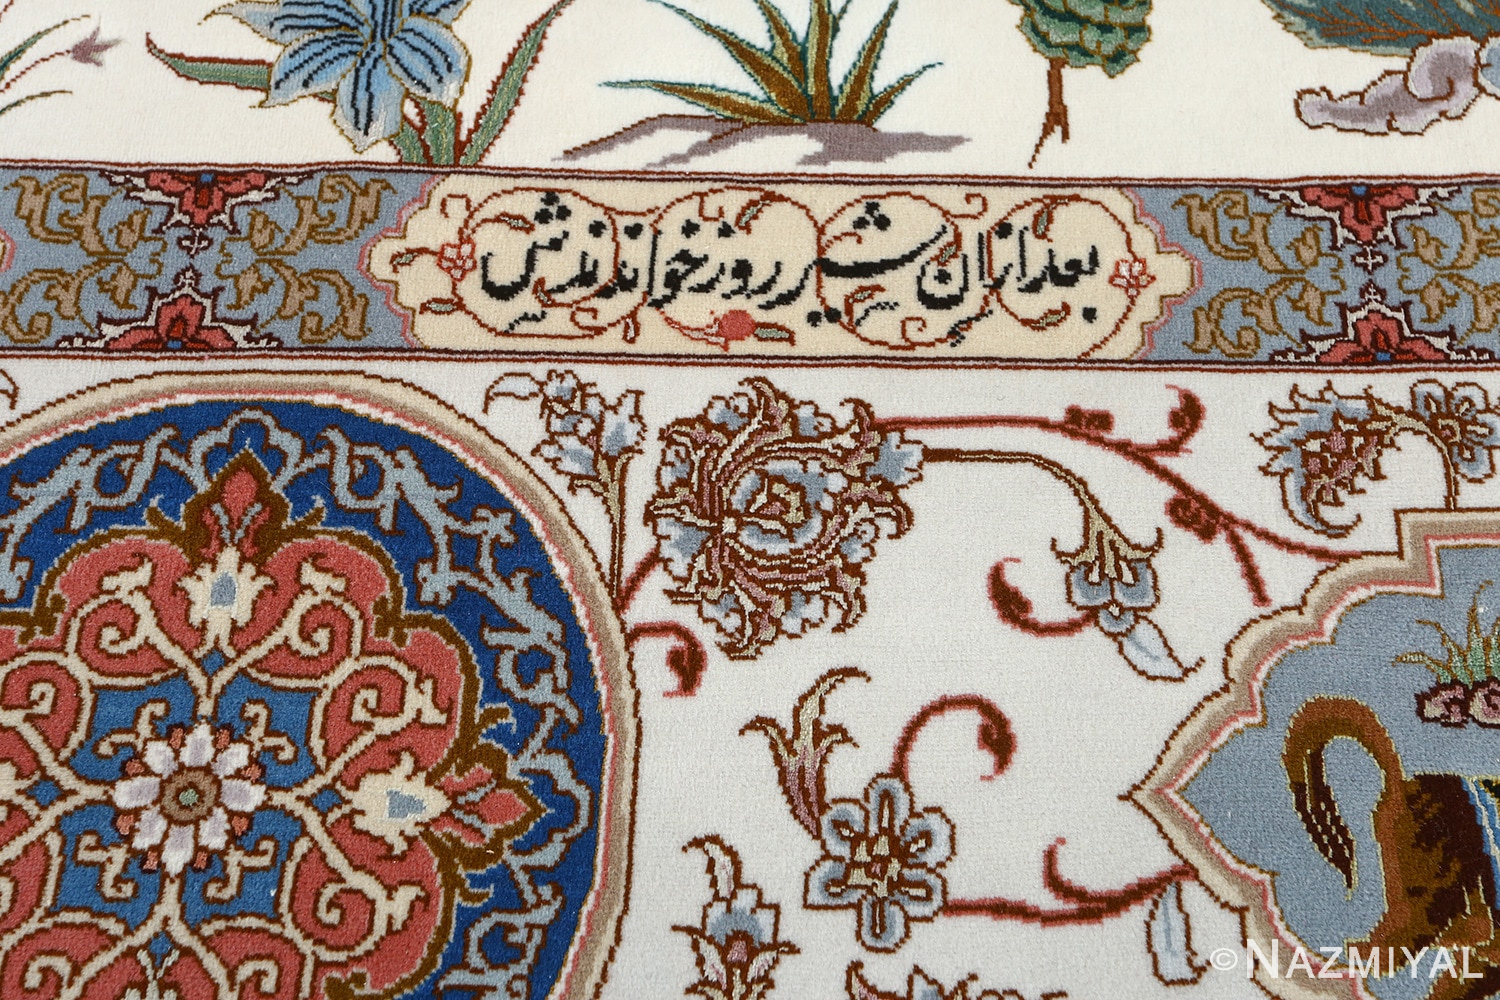 بعد ازان شیر روز خوانندش
© NAZMIYAL